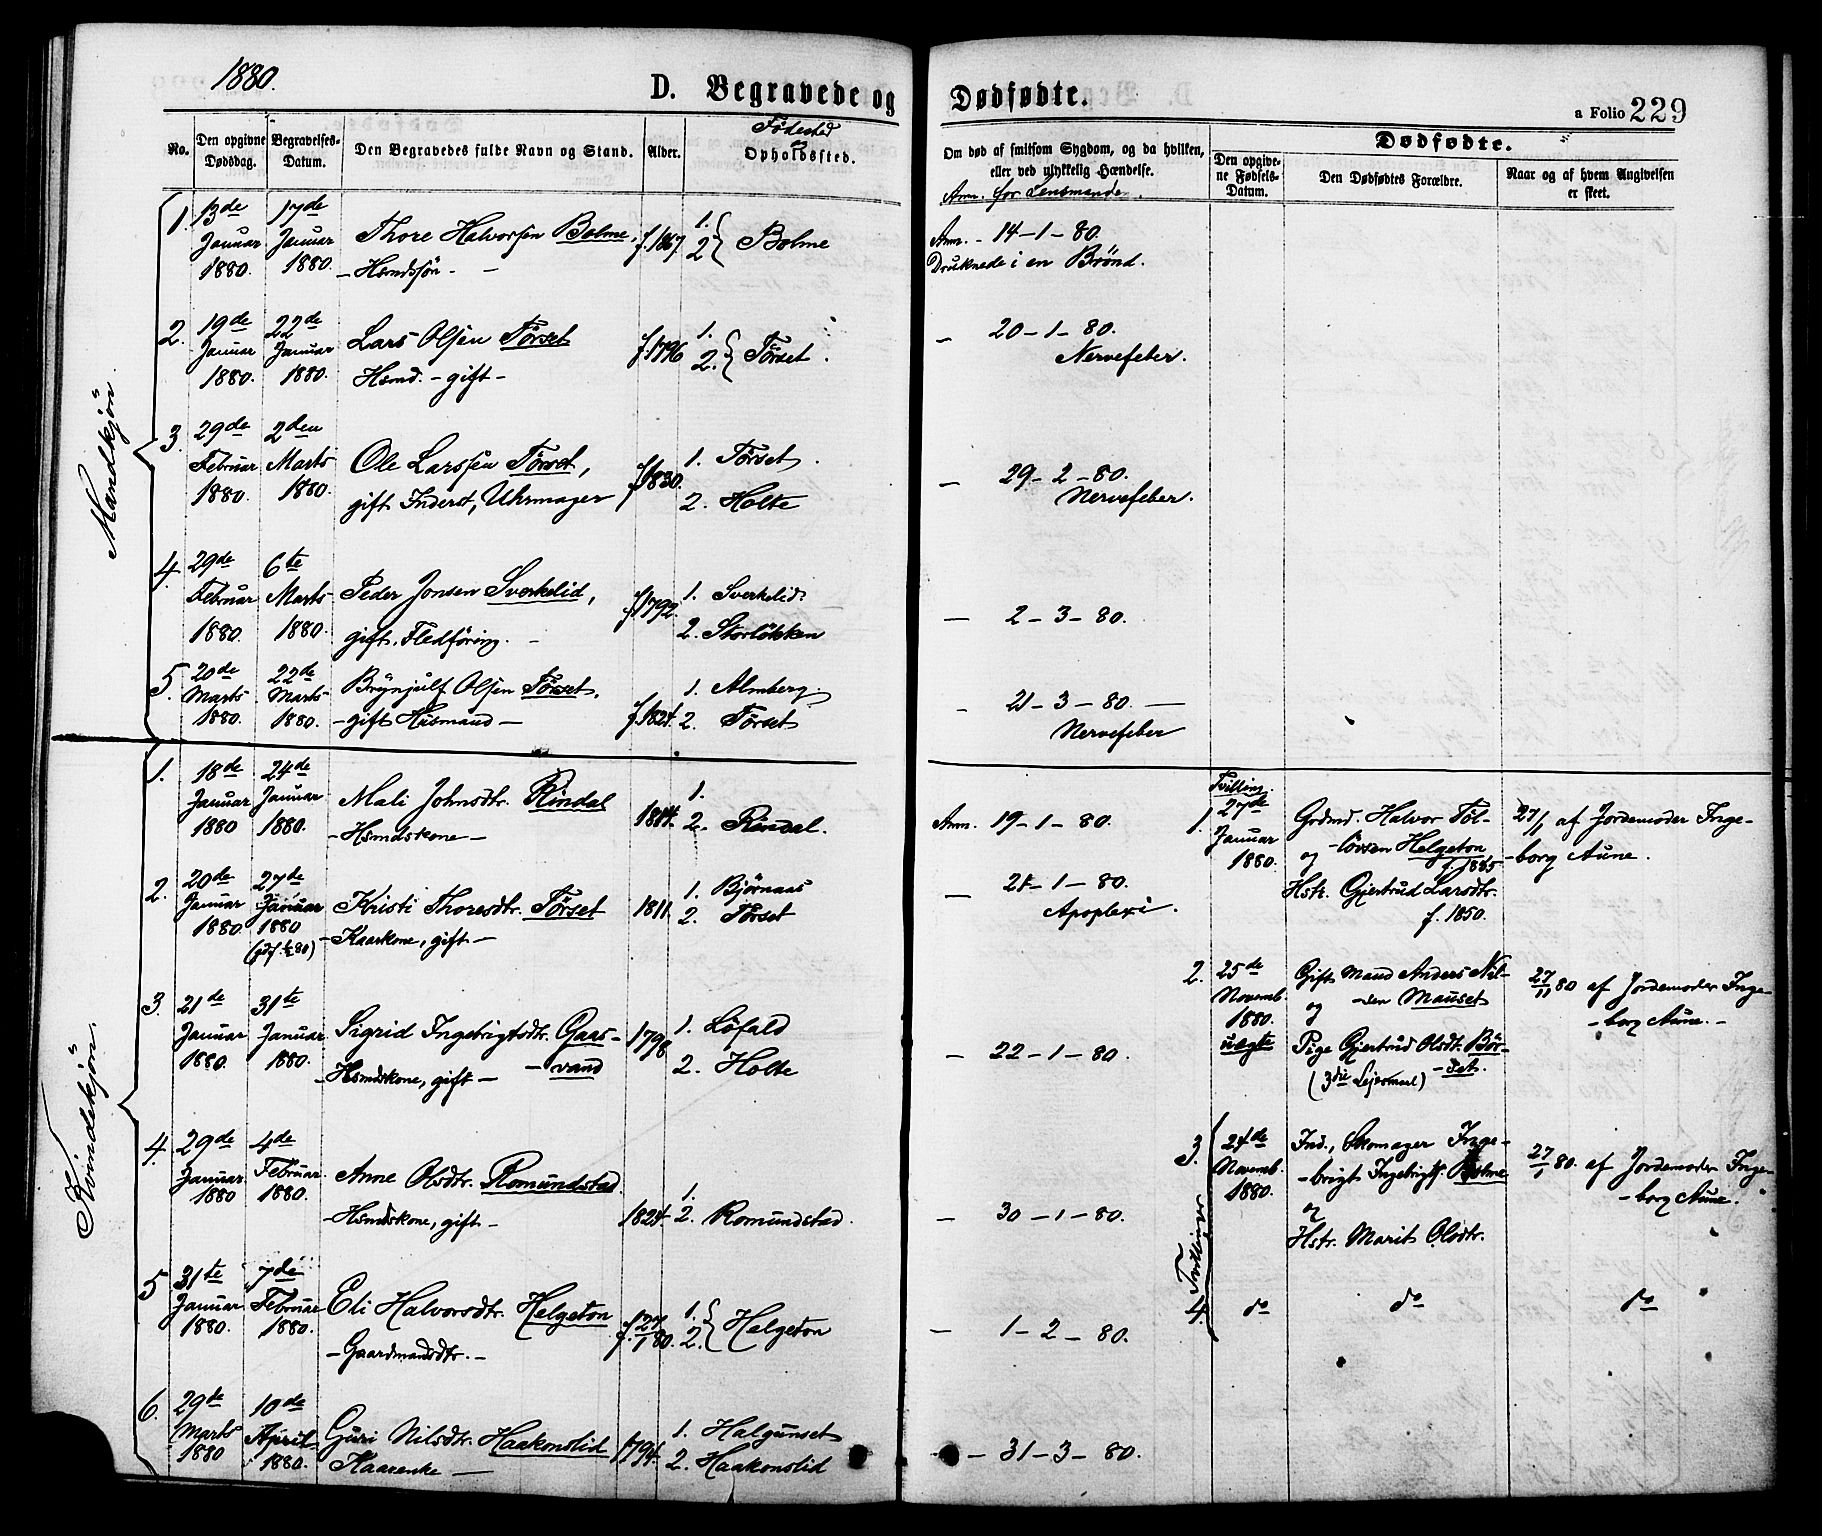 1880.
D. Begravede og
Dødfødte.
a Folio 229
No.
Den opgivne Dødsdag.
Begravelses-Datum.
Den Begravedes fulde Navn og Stand.
Alder.
Fødested
og
Opholdssted.
Om død af smitsom Sygdom, og da hvilken,
eller ved ulykkelig Hændelse.
Anm. for Lensmanden.
Dødfødte.
Den opgivne Fødsels-Datum.
Den Dødfødtes Forældre.
Naar og af hvem Angivelsen
er skeet.
Mandkjøn.
1. 13de Januar 1880. 17de Januar 1880. Thore Halvorsen Bolme, f. 1867. 1. 2 Bolme
- Hsmdssøn -
Anm. - 14-1-80.
Druknede i en Brønd.
2. 19de Januar 1880. 22de Januar 1880. Lars Olsen Törset f. 1796 1. 2. Törset.
Hsmd. - gift -
- 20-1-80.
Nervefeber.
3. 29de Februar 1880. 2den Marts 1880. Ole Larssen Törset, f. 1830. 1. Törset.
gift Inderst, Uhrmager 2. Holte
- 29-2-80.
Nervefeber.
4. 29de Februar 1880. 6te Marts 1880. Peder Jonsen Sverkelid, f. 1792. 1. Sverkelid.
gift. Fledføring. - 2. Storløkken
- 2-3-80.
5. 20de Marts 1880. 22de Marts 1880. Brynjulf Olsen Törset, f. 1824. 1. Almberg.
- gift Husmand - 2. Törset
- 21-3-80. -
Nervefeber
Kvindekjøn.
1. 18de Januar 1880 24de Januar 1880. Mali Johnsdtr. Rindal 1814. 1.
- Hsmdskone - 2. Rindal.
Anm. 19-1-80.
2. 20de Januar 1880. 27de Januar 1880 Kristi Thoresdtr. Törset 1811. 1. Bjørnaas
- Kaarkone, gift - 2. Törset
- 21-1-80.
Apoplexi.
3. 21de Januar 1880. 31te Januar 1880. Sigrid Ingebrigtsdtr. Gaas- 1798 1. Löfald
- Hsmdskone, gift - -vand 2. Holte
- 22-1-80.
4. 29de Januar 1880 4de Februar 1880. Anne Olsdtr. Romundstad. 1.
- Hsmdskone, gift - 1824. 2. Romundstad.
- 30-1-80.
5 31te Januar 1880. 7de Februar 1880. Eli Halvorsdtr. Helgeton f. 27/1 80. 1. 2. Helgeton
- Gaardmandsdtr. -
- 1-2-80.
6. 29de Marts 1880 10de April 1880. Guri Nilsdtr. Haakonslid 1794. 1. Halgunset
Kaarenke - 2. Haakonslid
- 31-3-80.
Tvilling.
1. 27de Januar 1880. Grdmd. Halvor Töl-
-lövsen Helgeton
og
Hstr. Gjertrud Larsdtr.
f. 1850.
27/1 af Jordemoder Inge-
-borg Aune.
2. 25de Novemb. 1880. uægte
Gift Mand Anders Nil-
og -sen Mauset
Pige Gjertrud Olsdtr. Bör-
(3die Leiermaal) -set.
27/11 80 af Jordemoder Inge-
-borg Aune. -
Tvillinger
3. 24de Novemb. 1880.
Ind., Skomager Inge-
-brigt Ingebrigts. Bolme
og
Hstr. Marit Olsdtr.
27/1 80. af Jordemoder Inge-
-borg Aune.
4. do do do